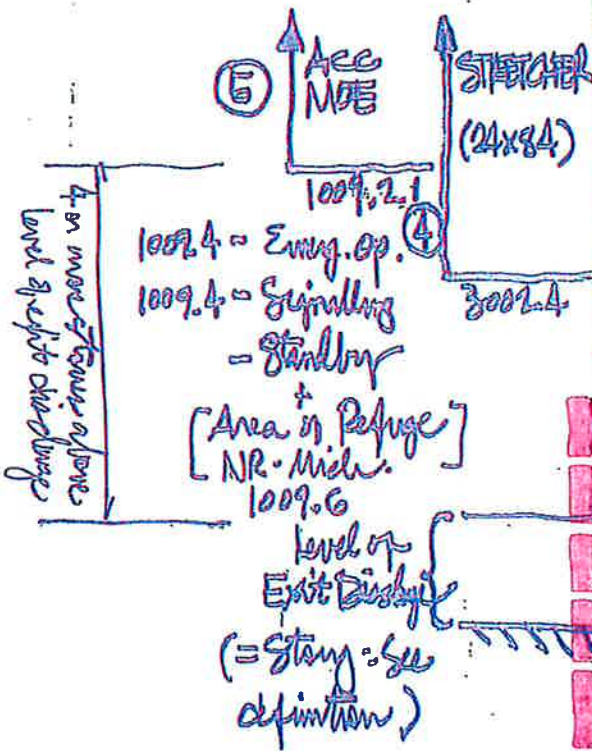 5
ACC
MOE
STRETCHER
(24x84)
1009.2.1
4
3002.4
1009.4 - Emrg. Op.
1009.4 - Signalling
- Standby
+
[Area of Refuge
NR - Mich.]
1009.6
4 or more stories above
level of exit discharge
Level of
Exit Dischg
(= Story - See
definition)